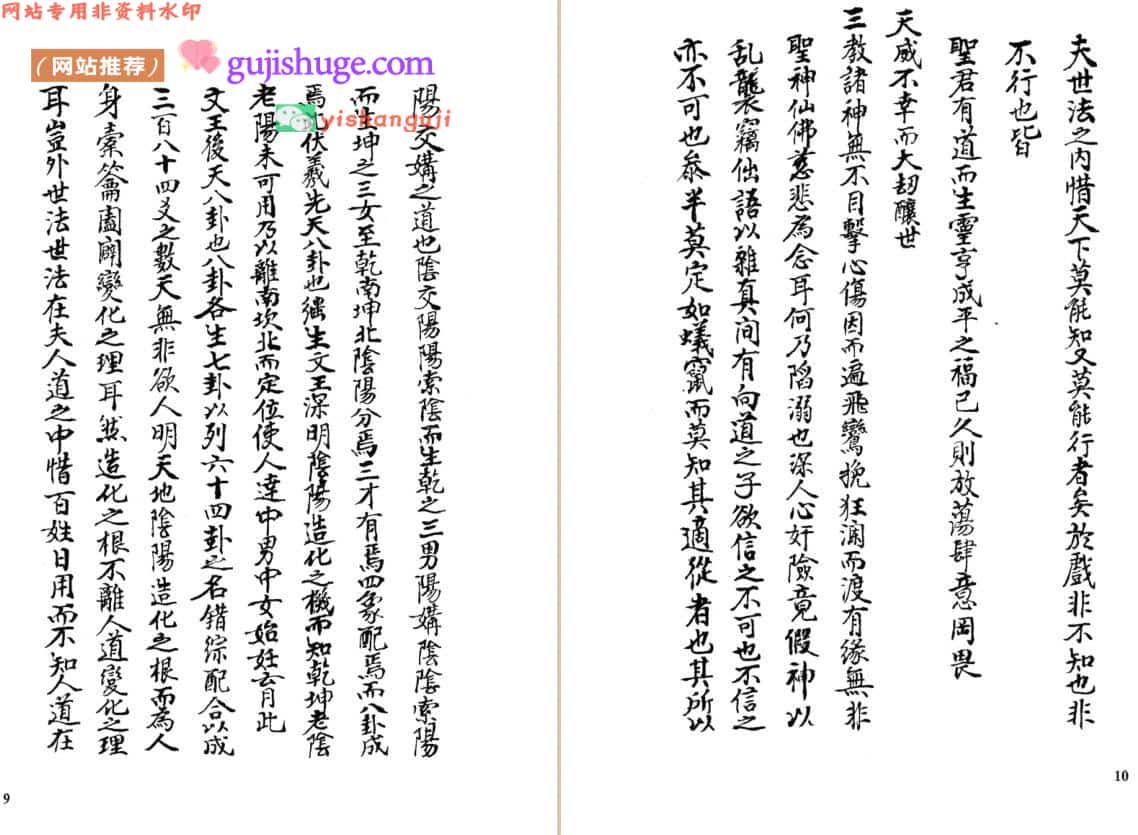 网站专用非资料水印
（网站推荐）
gujishuge.com
yishanguji
陽交媾之道也陰交陽陽索陰而生乾之三男陽媾陰陰索陽
而生坤之三女至乾南坤北陰陽分焉三才有焉四象配焉而八卦成
焉伏羲先天八卦也繼生文王深明陰陽造化之機而知乾坤老陰
老陽未可用乃以離南坎北而定位使人達中男中女始妊月此
文王後天八卦也八卦各生七卦以列六十四卦之名錯綜配合以成
三百八十四爻之數天無非欲人明天地陰陽造化之根而為人
身橐籥闔闢變化之理耳然造化之根不離人道變化之理
耳豈外世法世法在夫人道之中惜百姓日用而不知人道在
9
夫世法之内惜天下莫能知又莫能行者矣於戲非不知也非
不行也皆
聖君有道而生靈享成平之福已久則放蕩肆意罔畏
天威不幸而大劫釀世
三教諸神無不目擊心傷因而遍飛鸞挽狂瀾而渡有緣無非
聖神仙佛慈悲為念耳何乃陷溺也深人心奸險竟假神以
乱襲竊俗語以雜真间有向道之子欲信之不可也不信之
亦不可也叅半莫定如蟻竄而莫知其適從者也其所以
10